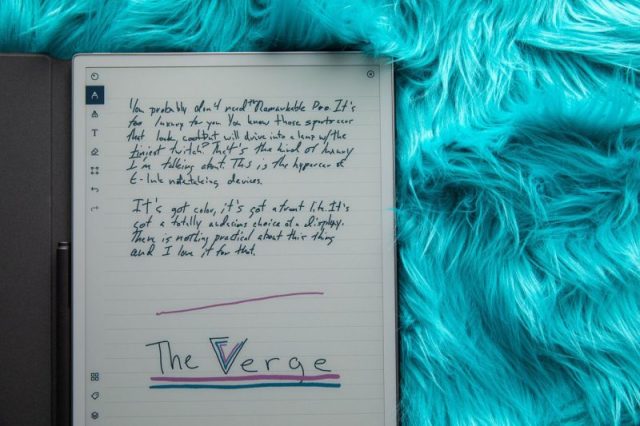 You probably don't need Remarkable Pro. It's
too luxury for you. You know those sports cars
that look cool but will drive into a lane w/the
tiniest twitch? That's the kind of luxury
I'm talking about. This is the hypercar of
E-Ink notetaking devices.
It's got color, it's got a front lite. It's
got a totally audacious choice of a display.
There is nothing practical about this thing
and I love it for that.
The Verge
T